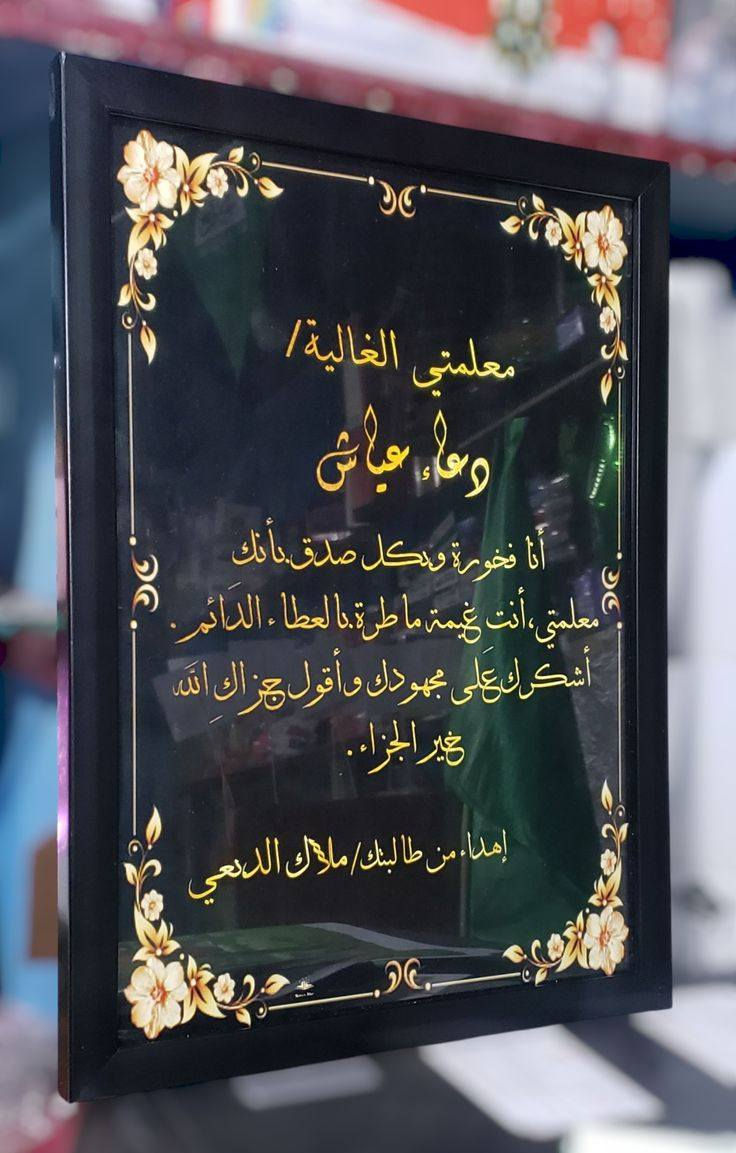 معلمتي الغالية/
دعاء عياش
أنا فخورة وبكل صدق بأنك
معلمتي، أنت غيمة ماطرة بالعطاء الدَائم.
أشكرك عَلى مجهودك وأقول جزاكِ الله
خير الجزاء.
إهداء من طالبتك/ملاك الدبعي